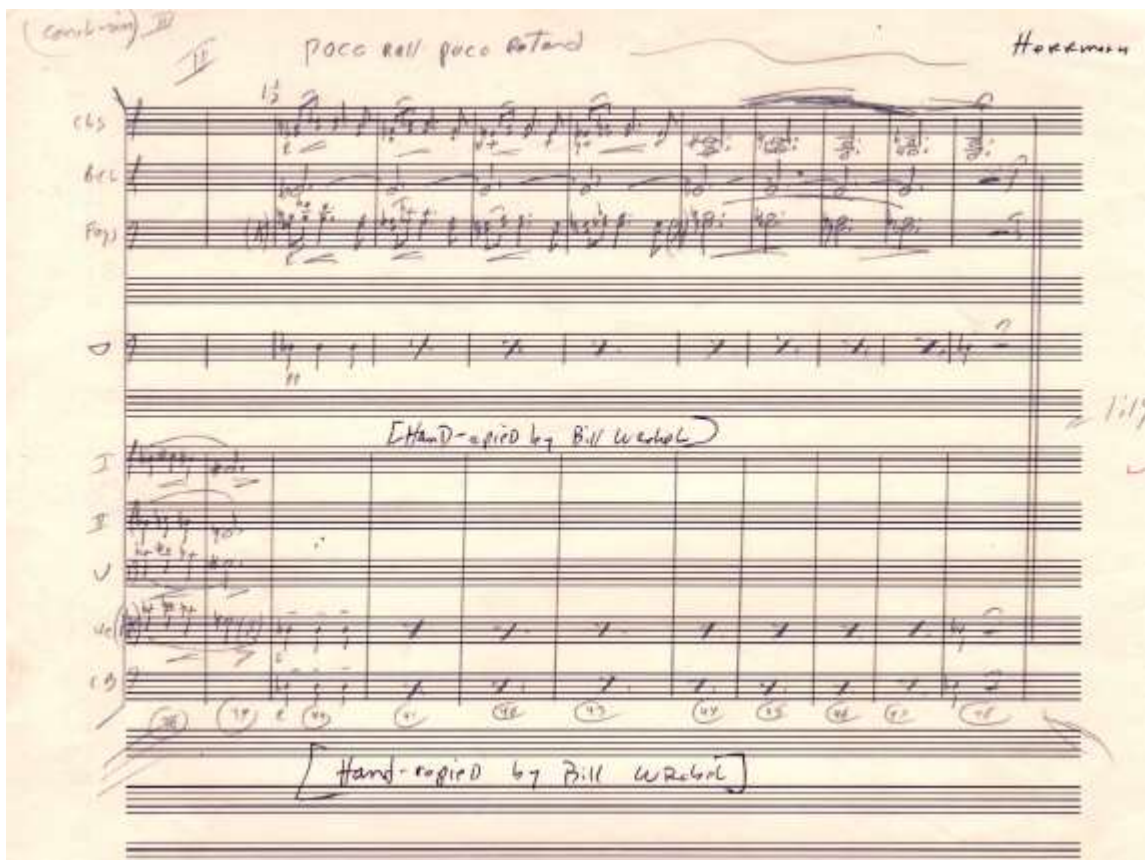 II
poco rall poco Herrmann
Cls
BCL
Fags
[Hand-copied by Bill Wrobel]
I
II
V
Vc
CB
38 39 40 41 42 43 44 45 46 47 48
[Hand-copied by Bill Wrobel]